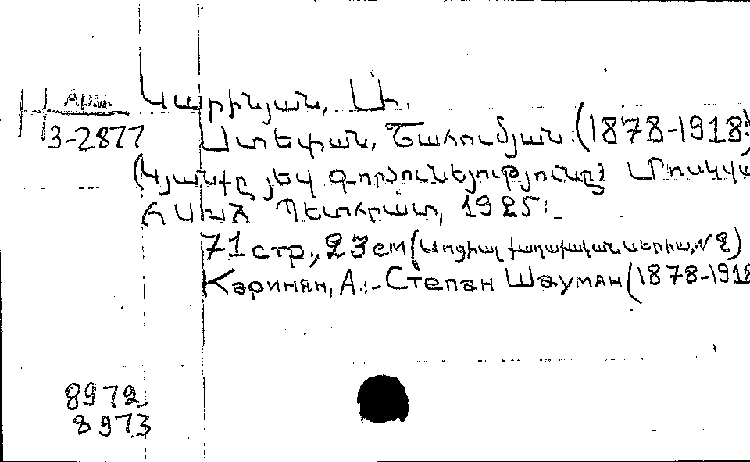 Арм.
Կարինյան, Ա.
3-2877
Ստեփան Շահումյան (1878-1918)
(Կյանքը յեվ գործունեյությունը) Մոսկվա
Հ Ս Խ Հ Պետհրատ, 1925։
71 стр., 23 см (Սոցիալ քաղաքական սերիա, № 2)
Каринян, А.:- Степан Шауман (1878-1918
8972
8973